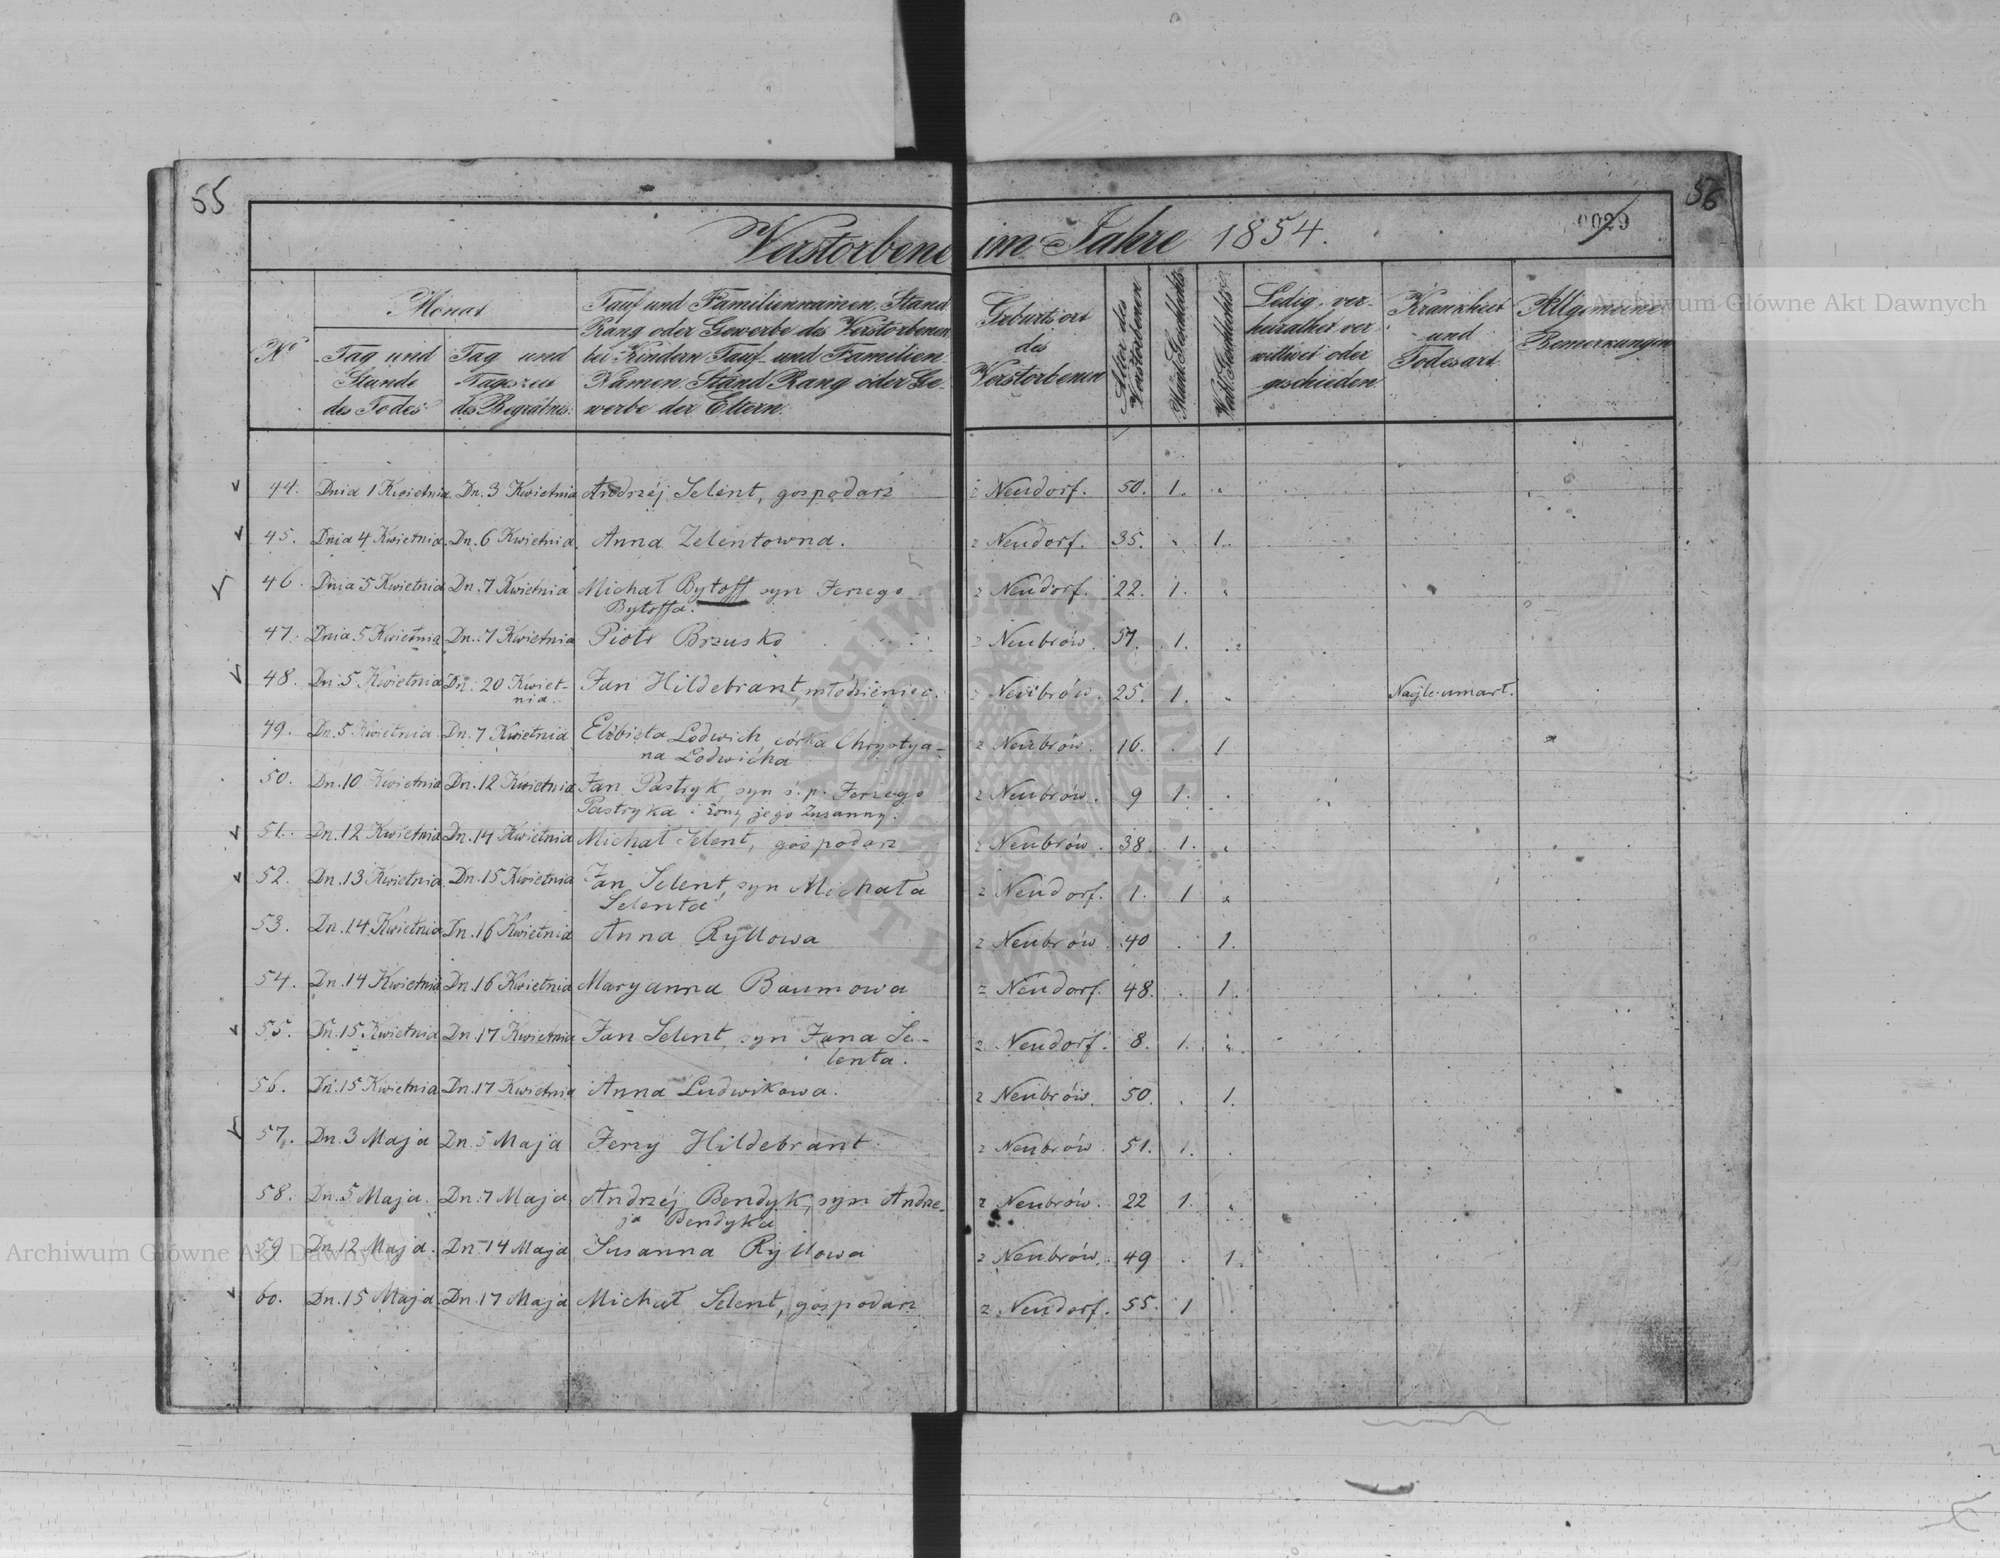 55
56
Verstorbene im Jahre 1854.
0029
No
Monat
Tag und Stunde des Todes
Tag und Tageszeit des Begräbnis:
Tauf und Familiennamen, Stand
Rang oder Gewerbe des Verstorbenen
bei Kindern Tauf- und Familien
Namen, Stand Rang oder Ge-
werbe der Eltern.
Geburtsort des Verstorbenen
Alter des Verstorbenen
Mänl. Geschlechts
Waibl. Geschlechts
Ledig, ver-
heirathet ver-
wittwet oder
geschieden
Krankheit und Todesart
Allgemeine Bemerkungen
44. Dnia 1 Kwietnia Dn. 3 Kwietnia Andrzéj Selent, gospodarz z Neudorf. 50. 1.
45. Dnia 4 Kwietnia Dn. 6 Kwietnia Anna Zelentowna. z Neudorf. 35. 1.
46. Dnia 5 Kwietnia Dn. 7 Kwietnia Michał Bytoff syn Jerzego z Neudorf. 22. 1.
Bytoffa.
47. Dnia 5 Kwietnia Dn. 7 Kwietnia Piotr Brzusko z Neubrów. 57. 1.
48. Dn. 5 Kwietnia Dn. 20 Kwiet- Jan Hildebrant, młodzieniec. z Neubrów. 25. 1. Nagle umarł.
nia.
49. Dn. 5 Kwietnia Dn. 7 Kwietnia Elżbieta Lodwich córka Chrystya- z Neubrów. 16. 1
na Lodwicha
50. Dn. 10 Kwietnia Dn. 12 Kwietnia Jan Pastryk, syn ś. p. Jerzego z Neubrów. 9 1.
Pastryka i żony jego Zuzanny.
51. Dn. 12 Kwietnia Dn. 14 Kwietnia Michał Selent, gospodarz z Neubrów. 38. 1.
52. Dn. 13 Kwietnia Dn. 15 Kwietnia Jan Selent, syn Michała z Neudorf. 1. 1
Selenta
53. Dn. 14 Kwietnia Dn. 16 Kwietnia Anna Ryllowa z Neubrów 40 1.
54. Dn. 14 Kwietnia Dn. 16 Kwietnia Maryanna Baumowa z Neudorf. 48. 1.
55. Dn. 15 Kwietnia Dn. 17 Kwietnia Jan Selent, syn Jana Se- z Neudorf. 8. 1.
lenta.
56. Dn. 15 Kwietnia Dn. 17 Kwietnia Anna Ludwikowa. z Neubrów. 50. 1.
57. Dn. 3 Maja Dn. 5 Maja Jerzy Hildebrant z Neubrów. 51. 1.
58. Dn. 5 Maja. Dn. 7 Maja Andrzéj Bendyk, syn Andrze- z Neubrów. 22 1.
ja Bendyka
59 Dn. 12 Maja. Dn. 14 Maja Susanna Ryllowa z Neubrów. 49 1.
60. Dn. 15 Maja. Dn. 17 Maja Michał Selent, gospodarz z Neudorf. 55. 1
Archiwum Główne Akt Dawnych
Archiwum Główne Akt Dawnych
ARCHIWUM GŁÓWNE AKT DAWNYCH